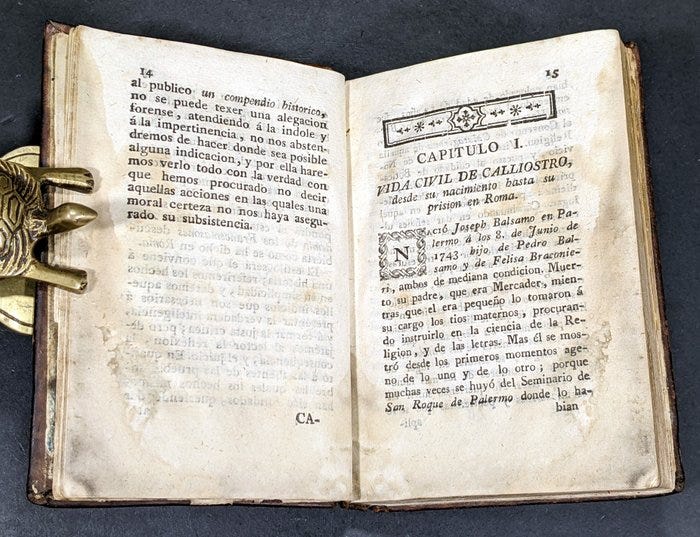 14
al publico un compendio historico,
no se puede texer una alegacion
forense, atendiendo á la indole y
á la impertinencia, no nos absten-
dremos de hacer donde sea posible
alguna indicacion, y por ella hare-
mos verlo todo con la verdad con
que hemos procurado no decir
aquellas acciones en las quales una
moral certeza no nos haya asegu-
rado su subsistencia.
CA-
15
CAPITULO I.
VIDA CIVIL DE CALLIOSTRO,
desde su nacimiento hasta su
prision en Roma.
Nació Joseph Balsamo en Pa-
lermo á los 8. de Junio de
1743 hijo de Pedro Bal-
samo y de Felisa Braconie-
ri, ambos de mediana condicion. Muer-
to su padre, que era Mercader, mien-
tras que el era pequeño lo tomaron á
su cargo los tios maternos, procuran-
do instruirlo en la ciencia de la Re-
ligion, y de las letras. Mas él se mos-
tró desde los primeros momentos age-
no de lo uno y de lo otro; porque
muchas veces se huyó del Seminario de
San Roque de Palermo donde lo ha-
bian